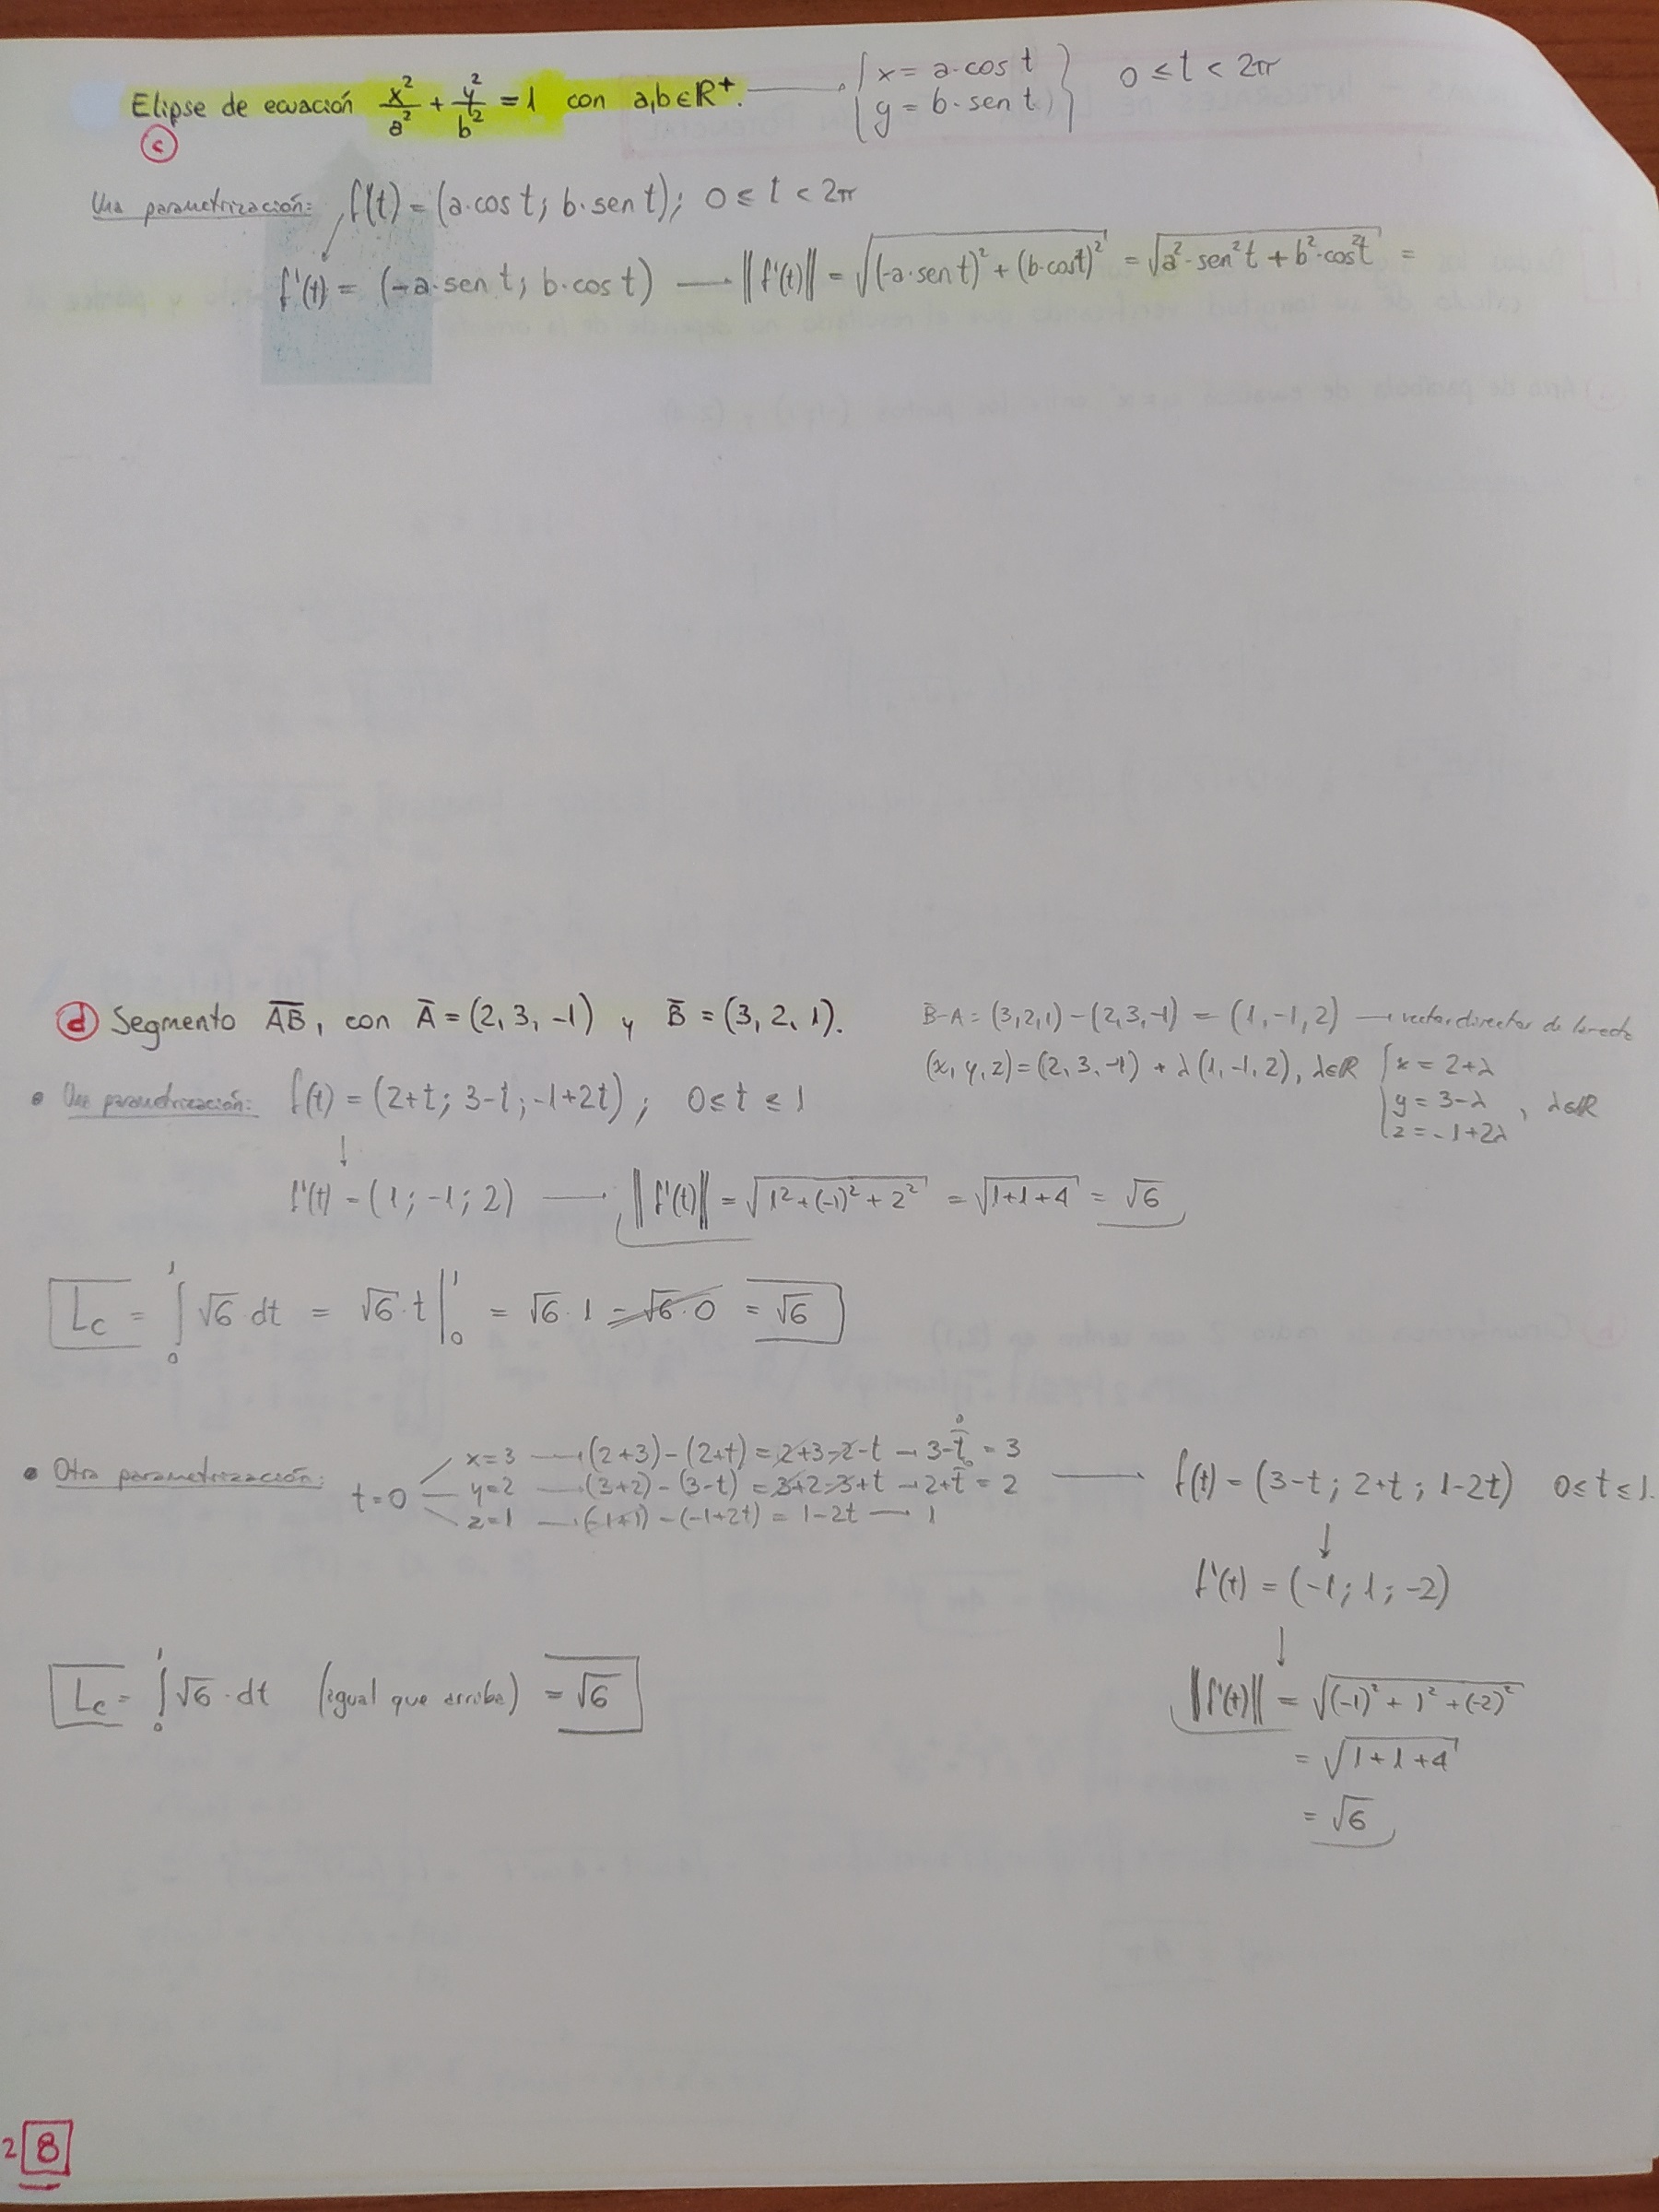 Elipse de ecuación x²/a² + y²/b² = 1 con a,b ∈ R⁺. → { x = a·cos t } 0 ≤ t < 2π
{ y = b·sen t }
c
Una parametrización: f(t) = (a·cos t; b·sen t); 0 ≤ t < 2π
f'(t) = (-a·sen t; b·cos t) → ||f'(t)|| = √((-a·sen t)² + (b·cos t)²) = √(a²·sen²t + b²·cos²t) =
d Segmento AB, con A = (2, 3, -1) y B = (3, 2, 1). B-A = (3,2,1) - (2,3,-1) = (1,-1,2) → vector director de la recta
(x, y, z) = (2, 3, -1) + λ(1, -1, 2), λ∈R { x = 2+λ
y = 3-λ , λ∈R
z = -1+2λ
• Una parametrización: f(t) = (2+t; 3-t; -1+2t); 0 ≤ t ≤ 1
↓
f'(t) = (1; -1; 2) → ||f'(t)|| = √(1² + (-1)² + 2²) = √(1+1+4) = √6
Lc = ∫₀¹ √6·dt = √6·t |₀¹ = √6·1 - √6·0 = √6
• Otra parametrización: t=0
x=3 → (2+3) - (2+t) = 2+3-2-t → 3-t = 3
y=2 → (3+2) - (3-t) = 3+2-3+t → 2+t = 2
z=1 → (-1+1) - (-1+2t) = 1-2t → 1
→ f(t) = (3-t; 2+t; 1-2t) 0 ≤ t ≤ 1.
↓
f'(t) = (-1; 1; -2)
↓
Lc = ∫₀¹ √6·dt (igual que arriba) = √6
||f'(t)|| = √((-1)² + 1² + (-2)²)
= √(1+1+4)
= √6
2 8